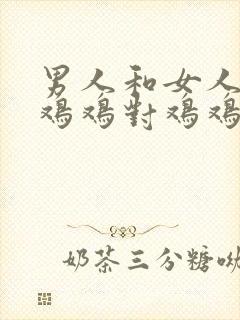 男人和女人
鸡鸡對鸡鸡
奶茶三分糖呦